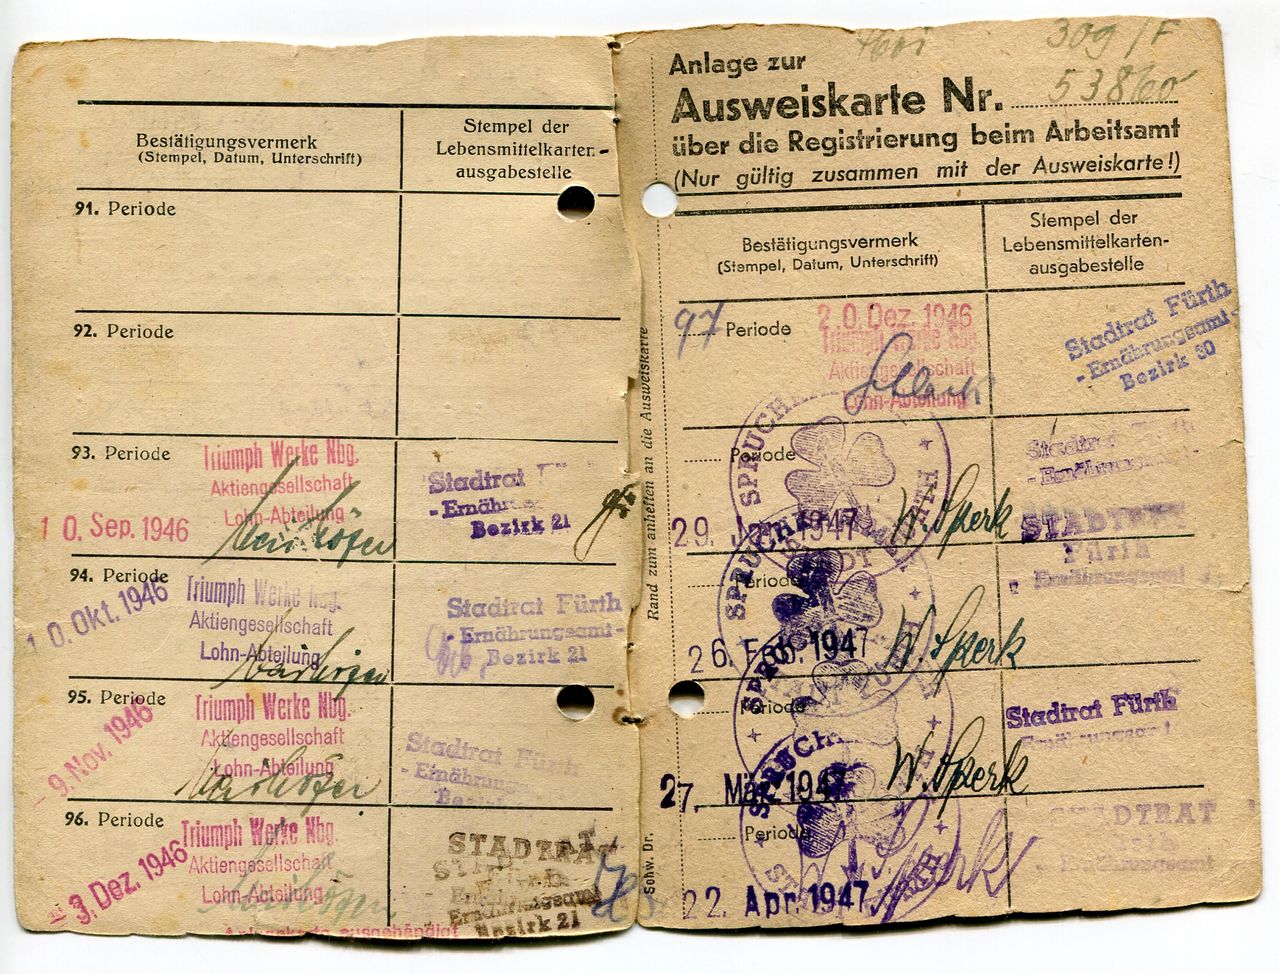 Bestätigungsvermerk
(Stempel, Datum, Unterschrift)
Stempel der
Lebensmittelkarten-
ausgabestelle
91. Periode
92. Periode
93. Periode
Triumph Werke Nbg.
Aktiengesellschaft
Lohn-Abteilung
10. Sep. 1946
Stadtrat Fü
- Ernähr
Bezirk 21
94. Periode
10. Okt. 1946
Triumph Werke Nbg.
Aktiengesellschaft
Lohn-Abteilung
Stadtrat Fürth
- Ernährungsamt -
Bezirk 21
95. Periode
- 9. Nov. 1946
Triumph Werke Nbg.
Aktiengesellschaft
Lohn-Abteilung
Stadtrat Fürth
- Ernährungs
96. Periode
- 3. Dez. 1946
Triumph Werke Nbg.
Aktiengesellschaft
Lohn-Abteilung
ausgehändigt
STADTRAT
Fürth
Ernährungsamt
Bezirk 21
Rand zum anheften an die Ausweiskarte
Schw. Dr.
309/F
Anlage zur
Ausweiskarte Nr. 53860
über die Registrierung beim Arbeitsamt
(Nur gültig zusammen mit der Ausweiskarte!)
Bestätigungsvermerk
(Stempel, Datum, Unterschrift)
Stempel der
Lebensmittelkarten-
ausgabestelle
97 Periode
20. Dez. 1946
Triumph Werke Nbg.
Aktiengesellschaft
Lohn-Abteilung
Stadtrat Fürth
- Ernährungsamt -
Bezirk 30
Periode
29. Jan. 1947
W. Sperk
Stadtrat Fürth
- Ernährungs
STADTRAT
Fürth
Ernährungsamt
Periode
26. Feb. 1947
W. Sperk
Periode
27. März 1947
W. Sperk
Stadtrat Fürth
Ernährungsamt
Periode
22. Apr. 1947
W. Sperk
STADTRAT
Fürth
Ernährungsamt